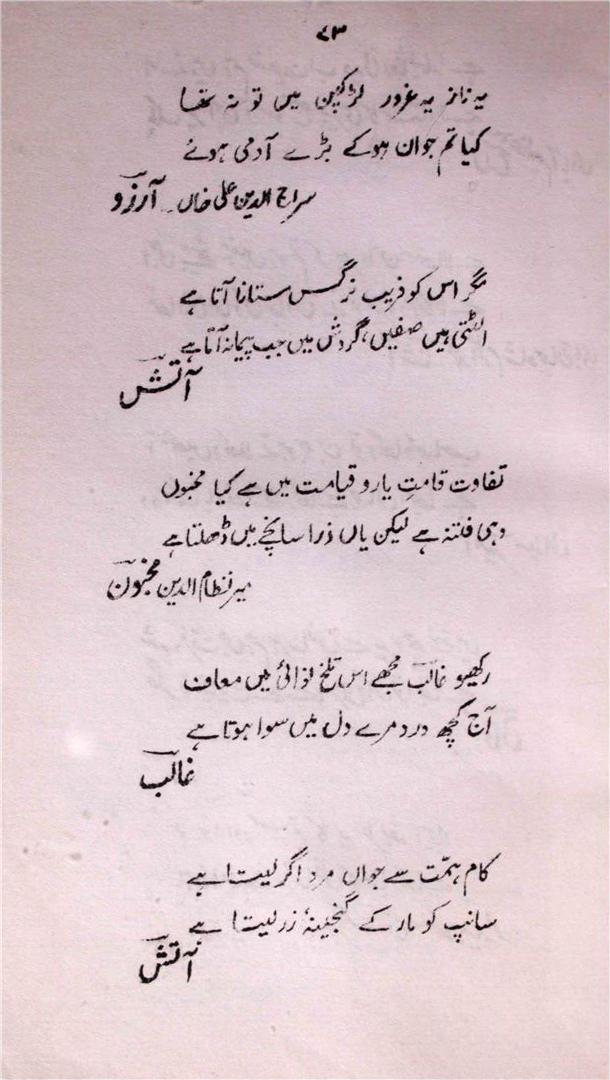 ۲۳
یہ ناز یہ غرور لڑکپن میں تو نہ تھا
کیا تم جوان ہو کے بڑے آدمی ہوئے
سراج الدین علی خاں۔ آرزو
مگر اس کو فریب نرگس ستانا آتا ہے
الٹتی ہیں صفیں، گردش میں جب پیمانہ آتا ہے
آتش
تفاوت قامتِ یار و قیامت میں ہے کیا ممنوں
وہی فتنہ ہے لیکن یاں ذرا سانچے میں ڈھلتا ہے
میر نظام الدین ممنون
رکھیو غالب مجھے اس تلخ نوائی میں معاف
آج کچھ درد مرے دل میں سوا ہوتا ہے
غالب
کام ہمّت سے جواں مرد اگر لیتا ہے
سانپ کو مار کے گنجینۂ زر لیتا ہے
آتش